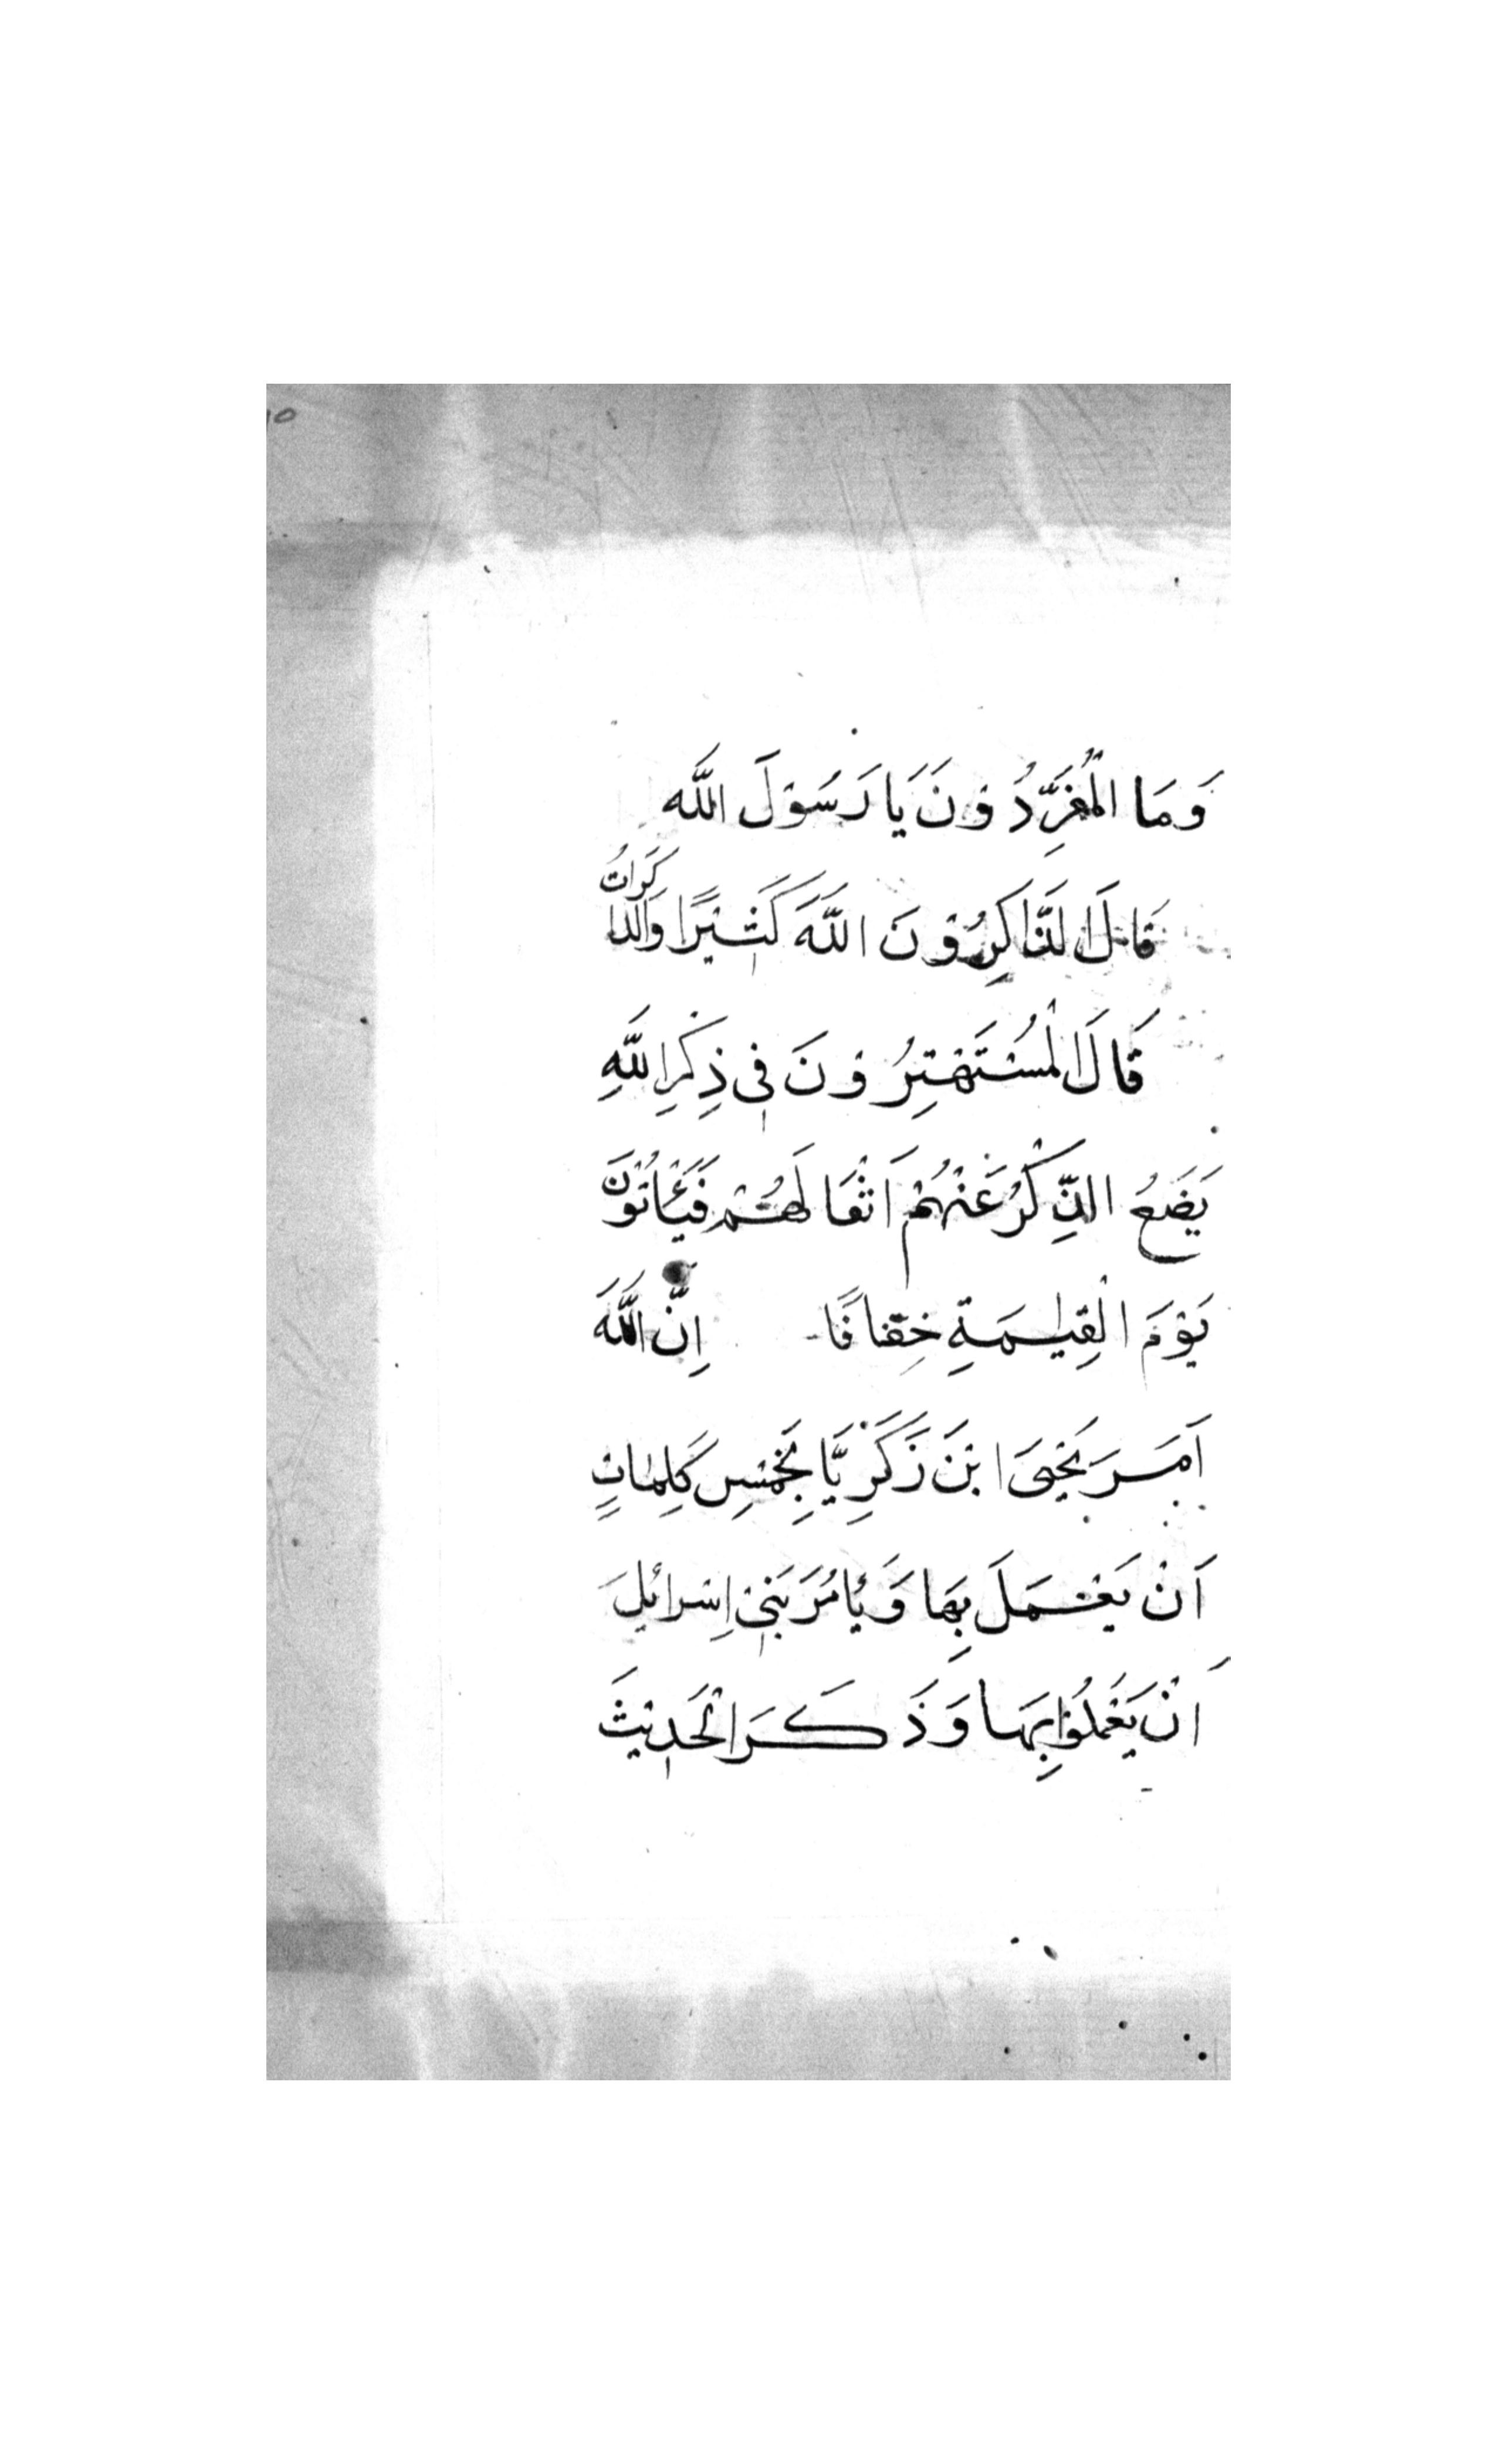 ١٥
وَمَا الْمُغَرِّدُوْنَ يَا رَسُوْلَ اللّٰه
قَالَ لذَّاكِرُوْنَ اللّٰهَ كَثِيْرًا وَالذا
كَرَاتُ
قَالَ الْمُسْتَهْتِرُوْنَ فِى ذِكْرِ اللّٰهِ
يَضَعُ الذِّكْرُ عَنْهُمْ اَثْقَالَهُمْ فَيَأْتُوْنَ
يَوْمَ الْقِيٰمَةِ خِفَافًا اِنَّ اللّٰهَ
اَمَرَ يَحْيَى ابْنَ زَكَرِيَّا بِخَمْسِ كَلِمَاتٍ
اَنْ يَعْمَلَ بِهَا وَيَأْمُرَ بَنِىْ اِسْرَائِلَ
اَنْ يَعْمَلُوْا بِهَا وَذَكَرَ الْحَدِيْثَ